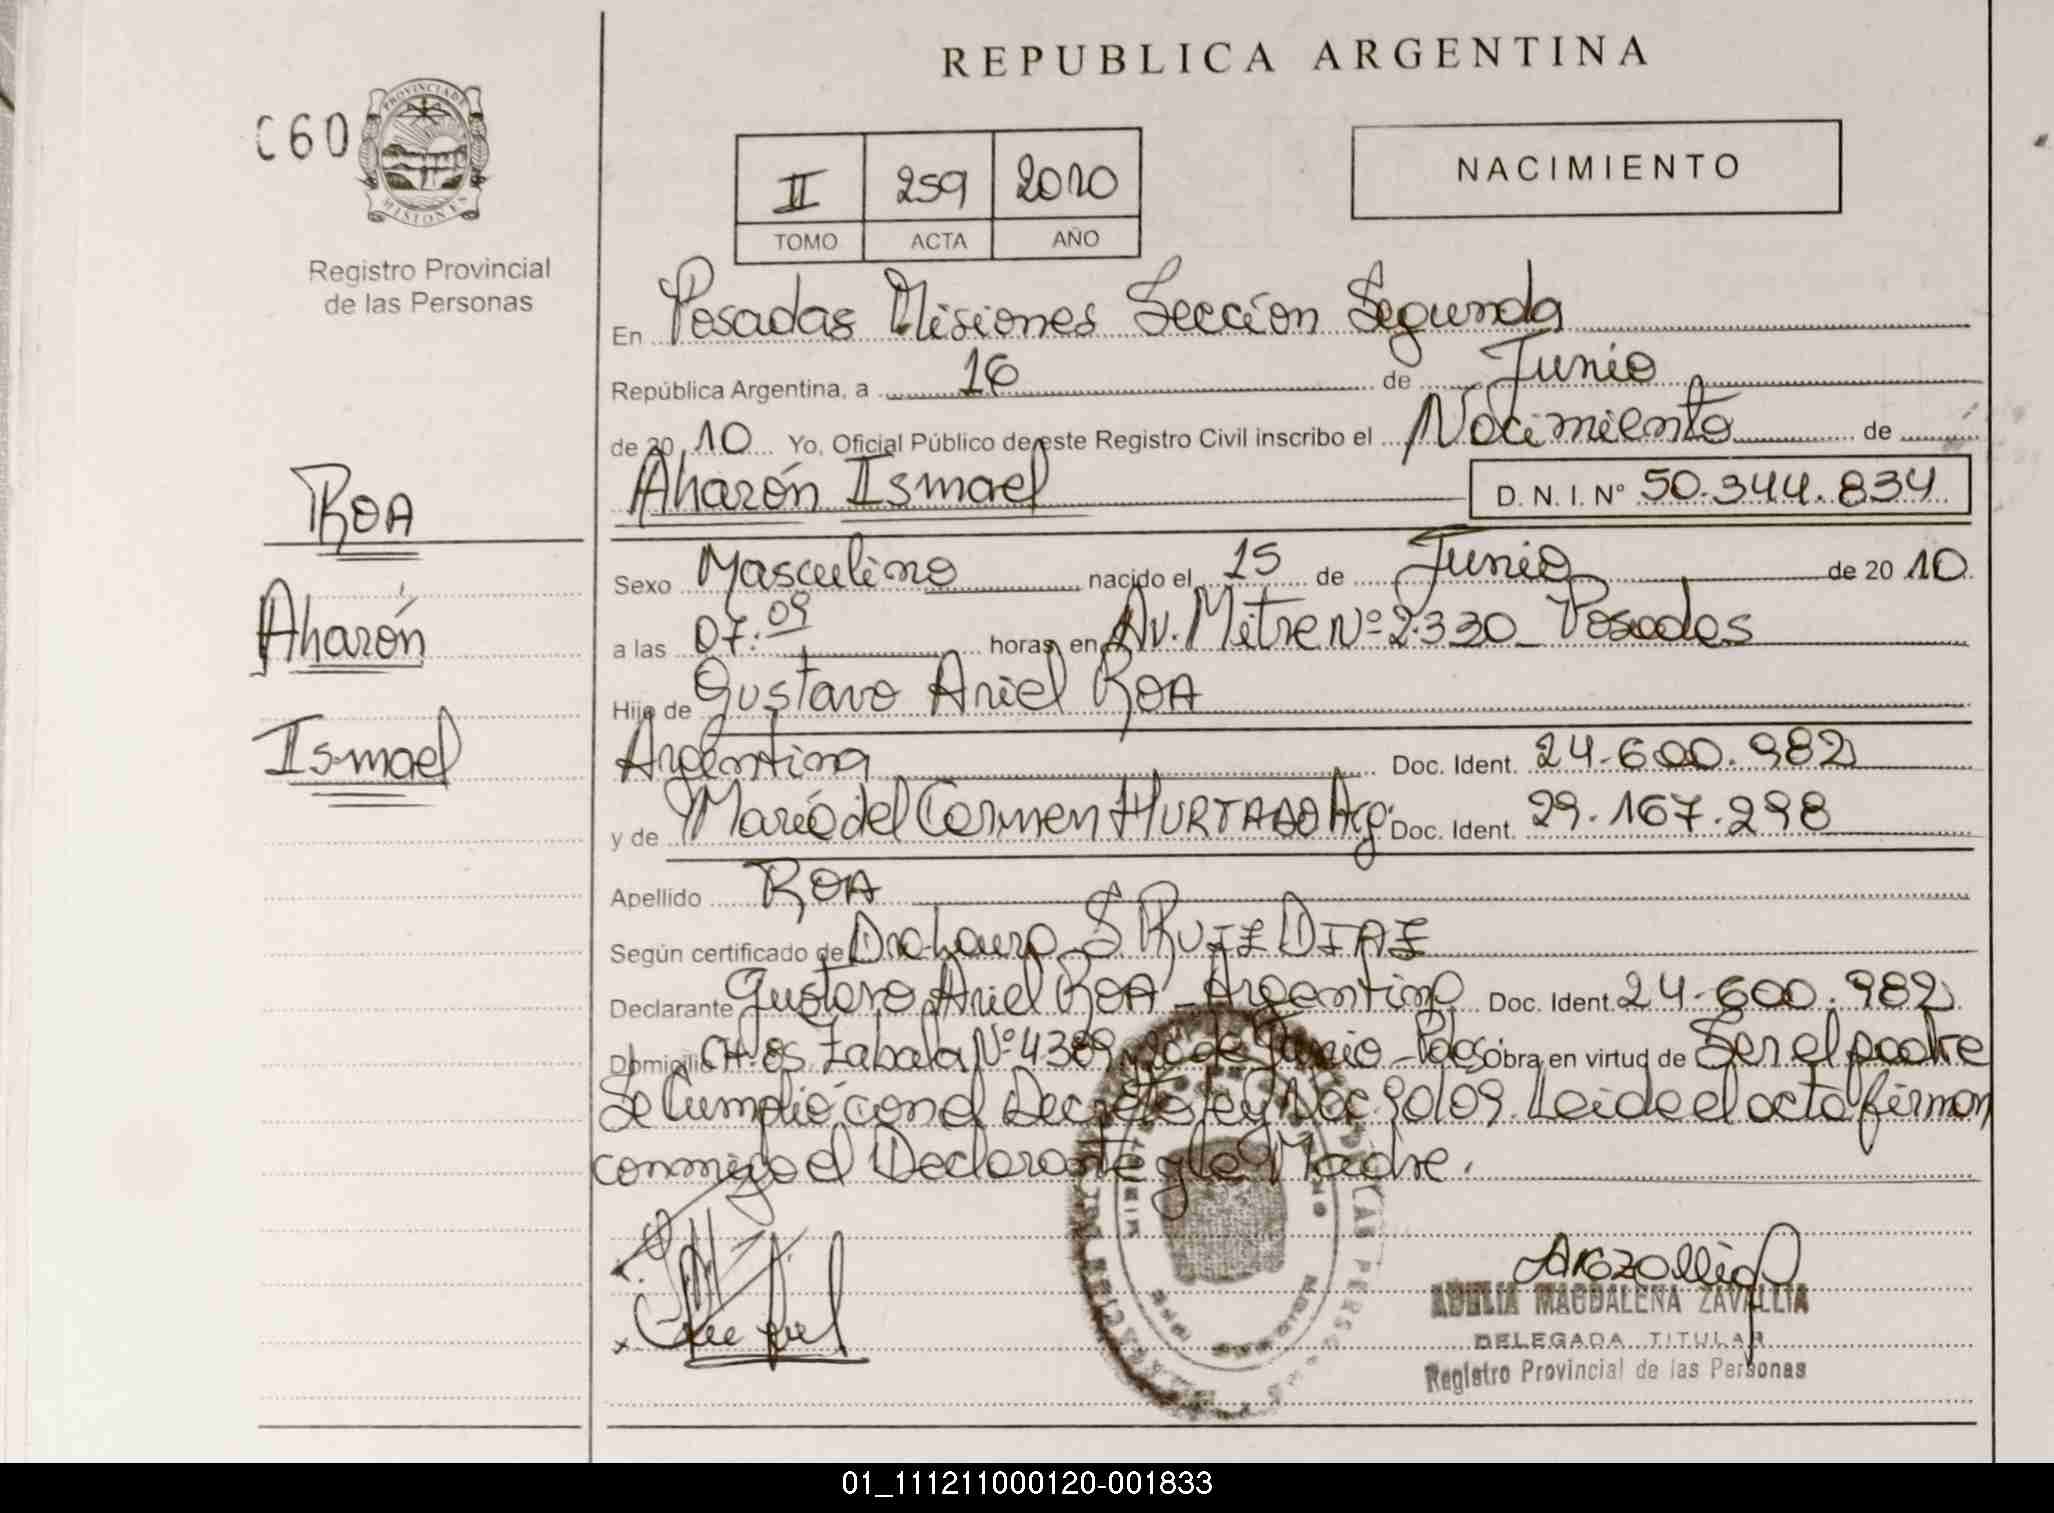 REPUBLICA ARGENTINA
C60
PROVINCIA DE
MISIONES
Registro Provincial
de las Personas
II 259 2010
TOMO ACTA AÑO
NACIMIENTO
En Posadas Misiones Sección Segunda
República Argentina, a 16 de Junio
de 2010 Yo, Oficial Público de este Registro Civil inscribo el Nacimiento de
Aharón Ismael D. N. I. N° 50.344.834
ROA
Aharón
Ismael
Sexo Masculino nacido el 15 de Junio de 2010
a las 07:09 horas en Av. Mitre Nº 2.330 _ Posadas
Hijo de Gustavo Ariel ROA
Argentina Doc. Ident. 24.600.982
y de María del Carmen HURTADO Arg. Doc. Ident. 29.167.298
Apellido ROA
Según certificado de Dra Laura S. RUIZ DIAZ
Declarante Gustavo Ariel ROA - Argentino Doc. Ident. 24.600.982
Domicilio CH. 85 Zabala Nº 4389 20 de Junio - Pdas obra en virtud de Ser el padre
Se Cumplió con el Decreto ley Nac. 90/09. Leida el acta firman
conmigo el Declarante y la Madre.
ADELIA MAGDALENA ZAVALLIA
DELEGADA TITULAR
Registro Provincial de las Personas
01_111211000120-001833